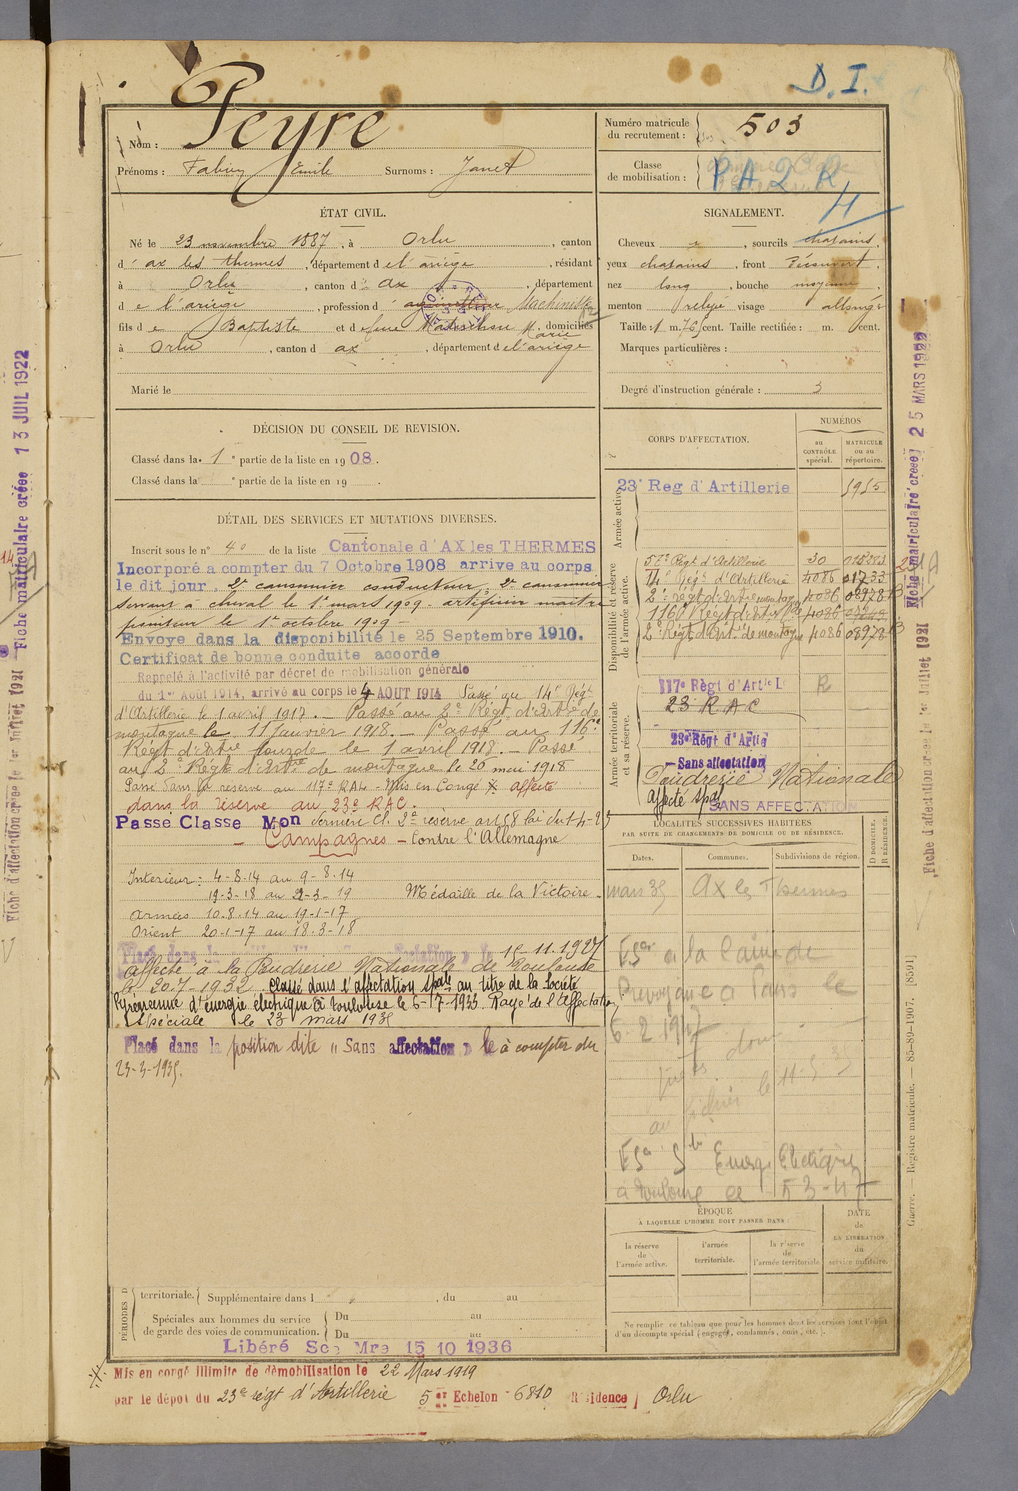 D. I.
Peyre
Nom :
Prénoms : Fabien Emile Surnoms : Janet
Numéro matricule
du recrutement : 503
Classe
de mobilisation : P A 2 R
4
ÉTAT CIVIL.
Né le 23 novembre 1887, à Orlu, canton
d' ax les thermes, département de l'ariège, résidant
à Orlu, canton d' ax, département
de l'ariège, profession d' Machiniste
fils de Baptiste et de feue Marie, domiciliés
à Orlu, canton d ax, département de l'ariège
Marié le
SIGNALEMENT.
Cheveux , sourcils chatains,
yeux chatains, front Découvert,
nez long, bouche moyenne,
menton relevé visage allongé
Taille : 1 m. 75 cent. Taille rectifiée : m. cent.
Marques particulières :
Degré d'instruction générale : 3
DÉCISION DU CONSEIL DE REVISION.
Classé dans la 1e partie de la liste en 1908.
Classé dans la e partie de la liste en 19
DÉTAIL DES SERVICES ET MUTATIONS DIVERSES.
Inscrit sous le n° 40 de la liste Cantonale d'AX les THERMES
Incorporé a compter du 7 Octobre 1908 arrive au corps
le dit jour, 2e canonnier conducteur, 2e canonnier
servant à cheval le 1 mars 1909 - artificier maitre
pointeur le 1er octobre 1909 -
Envoye dans la disponibilité le 25 Septembre 1910.
Certificat de bonne conduite accorde
Rappelé à l'activité par décret de mobilisation générale
du 1er Août 1914, arrivé au corps le 4 AOUT 1914 Passé au 14e Régt
d'Artillerie le 1 avril 1917. - Passé au 2e Régt d'Artie de
montagne le 11 Janvier 1918. - Passé au 116e
Régt d'Artie lourde le 1 avril 1918. - Passé
au 2e Régt d'Artie de montagne le 26 mai 1918
Passé dans la réserve au 117e RAL - Mis en Congé affecté
dans la réserve au 23e RAC.
Passé Classe Mon dernière Cl. 2e réserve art 58 loi du 1-4-23
- Campagnes - Contre l'Allemagne
Intérieur : 4-8-14 au 9-8-14
19-3-18 au 2-3-19 Médaille de la Victoire -
Armées 10.8.14 au 19-1-17
Orient 20-1-17 au 18-3-18
15-11.1927
Affecté à la Poudrerie Nationale de Toulouse
le 30.7-1932. Classé dans l'affectation spale au titre de la Société
Pyrénéenne d'Energie électrique à Toulouse le 6-17-1933 Rayé de l'Affectation
Spéciale le 23 mars 1935
Placé dans la position dite « Sans affectation » le à compter du
23-3-1935.
CORPS D'AFFECTATION.
NUMÉROS
au
CONTRÔLE
spécial.
MATRICULE
ou au
répertoire.
Armée active.
23e Reg d'Artillerie 5915
Disponibilité et réserve
de l'armée active.
57e Régt d'Artillerie 30
14e Régt d'Artillerie 4086 01733
2e régt d'Artie montagne 4086 08978
116e Régt d'Artie 4086
2e Régt d'Artie de montagne 4086 08978
Armée territoriale
et sa réserve.
117e Règt d'Artie L R
23 RAC
23e Règt d'Artie
- Sans affectation
Poudrerie Nationale
Affecté spal
SANS AFFECTATION
LOCALITÉS SUCCESSIVES HABITÉES
PAR SUITE DE CHANGEMENTS DE DOMICILE OU DE RÉSIDENCE.
Dates. Communes. Subdivisions de région. D DOMICILE. R RÉSIDENCE.
mars 35 Ax les Thermes
a la Caisse de
Prevoyance a Paris le
6-2 1947
le 11-5
Energie Electrique
a Toulouse le
ÉPOQUE
À LAQUELLE L'HOMME DOIT PASSER DANS :
DATE
de
LA LIBÉRATION
du
service militaire.
la réserve
de
l'armée active.
l'armée
territoriale.
la réserve
de
l'armée territoriale
Ne remplir ce tableau que pour les hommes dont les services font l'objet
d'un décompte spécial (engagés, condamnés, omis, etc.).
PÉRIODES D
territoriale. Supplémentaire dans l , du au
Spéciales aux hommes du service
de garde des voies de communication.
Du au
Du au
Libéré Sce Mre 15 10 1936
Mis en congé illimité de démobilisation le 22 Mars 1919
par le dépôt du 23e régt d'Artillerie 5e Echelon - 6810 Résidence Orlu
Fiche matriculaire créée 13 JUIL 1922
Fiche d'affectation créée le 1er Juillet 1921
Fiche matriculaire créée 25 MARS 1922
Fiche d'affectation créée le 1er Juillet 1921
Guerre. — Registre matricule. — 85-89-1907. [8591]